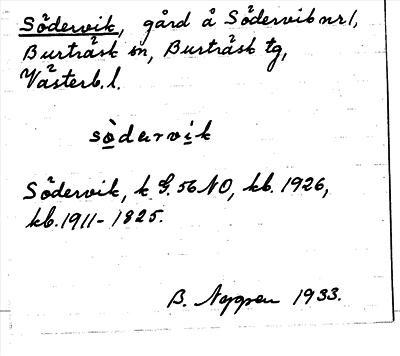 Södervik, gård å Södervik nr 1,
Burträsk sn, Burträsk tg,
Västerb. l.
sȯdərvik
Södervik, k G. 56 NO, kb. 1926,
kb. 1911-1825.
B. 1933.